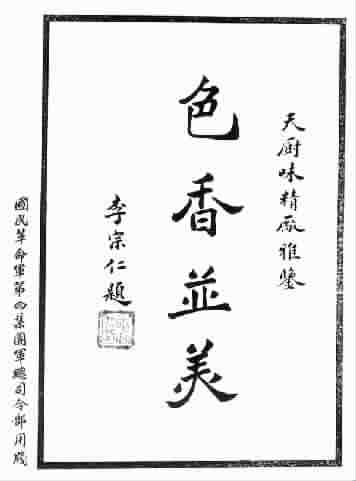 天廚味精廠雅鑒
色香並美
李宗仁題
國民革命軍第四集團軍總司令部用牋